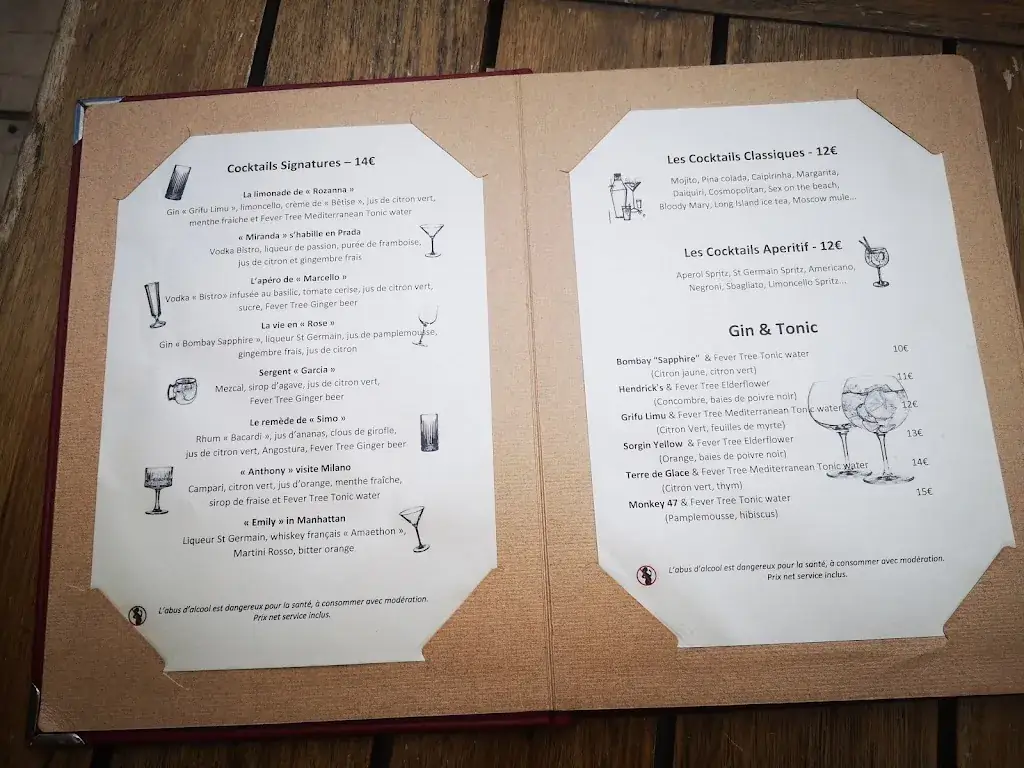 Cocktails Signatures – 14€
La limonade de « Rozanna »
Gin « Grifu Limu », limoncello, crème de « Bêtise », jus de citron vert,
menthe fraiche et Fever Tree Mediterranean Tonic water
« Miranda » s’habille en Prada
Vodka Bistro, liqueur de passion, purée de framboise,
jus de citron et gingembre frais
L’apéro de « Marcello »
Vodka « Bistro» infusée au basilic, tomate cerise, jus de citron vert,
sucre, Fever Tree Ginger beer
La vie en « Rose »
Gin « Bombay Sapphire », liqueur St Germain, jus de pamplemousse,
gingembre frais, jus de citron
Sergent « Garcia »
Mezcal, sirop d’agave, jus de citron vert,
Fever Tree Ginger beer
Le remède de « Simo »
Rhum « Bacardi », jus d’ananas, clous de girofle,
jus de citron vert, Angostura, Fever Tree Ginger beer
« Anthony » visite Milano
Campari, citron vert, jus d’orange, menthe fraîche,
sirop de fraise et Fever Tree Tonic water
« Emily » in Manhattan
Liqueur St Germain, whiskey français « Amaethon »,
Martini Rosso, bitter orange
L’abus d’alcool est dangereux pour la santé, à consommer avec modération.
Prix net service inclus.
Les Cocktails Classiques - 12€
Mojito, Pina colada, Caipirinha, Margarita,
Daiquiri, Cosmopolitan, Sex on the beach,
Bloody Mary, Long Island ice tea, Moscow mule...
Les Cocktails Aperitif - 12€
Aperol Spritz, St Germain Spritz, Americano,
Negroni, Sbagliato, Limoncello Spritz...
Gin & Tonic
Bombay "Sapphire" & Fever Tree Tonic water 10€
(Citron jaune, citron vert)
Hendrick's & Fever Tree Elderflower 11€
(Concombre, baies de poivre noir)
Grifu Limu & Fever Tree Mediterranean Tonic water 12€
(Citron Vert, feuilles de myrte)
Sorgin Yellow & Fever Tree Elderflower 13€
(Orange, baies de poivre noir)
Terre de Glace & Fever Tree Mediterranean Tonic water 14€
(Citron vert, thym)
Monkey 47 & Fever Tree Tonic water 15€
(Pamplemousse, hibiscus)
L’abus d’alcool est dangereux pour la santé, à consommer avec modération.
Prix net service inclus.